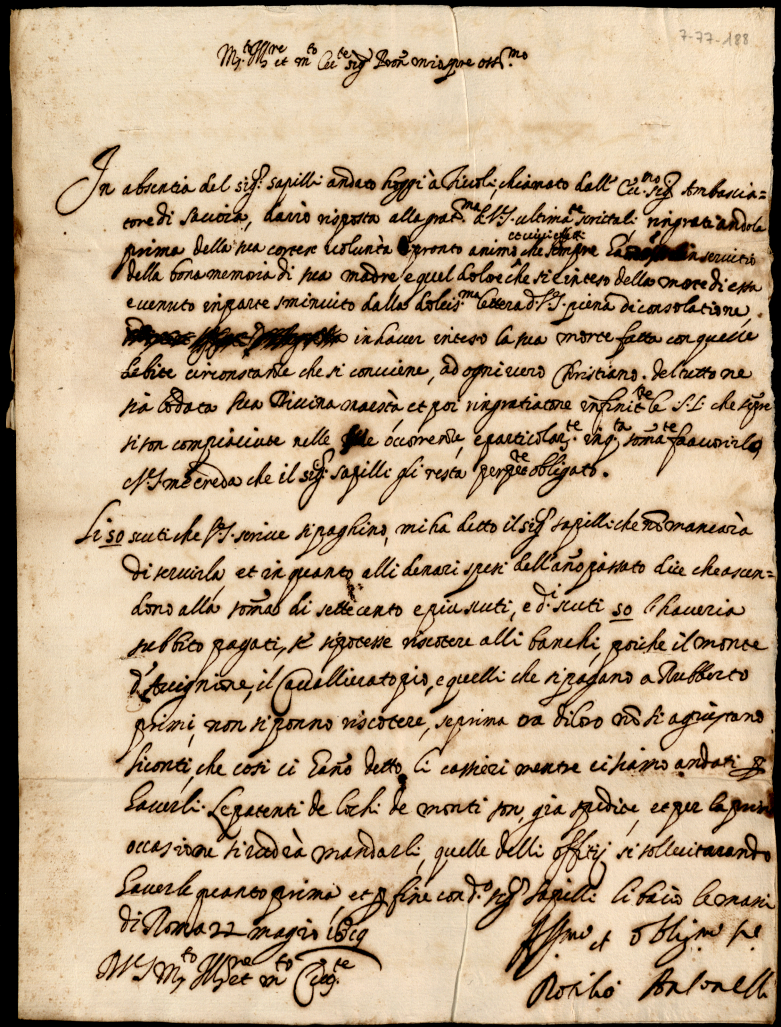 7-77-188
M.to Ill.re et m.to Ecc.te sig.r Pron mio sempre oss.mo
In absentia del sig.r Sapilli andato hoggi à Tivoli, chiamato dall' Ecc.mo sig.r Ambascia=
tore di Savoia, darò risposta alla grat.ma di V.S. ultima.te scrittali ringratiandola
prima della sua cortese volontà e pronto animo che sempre in servitio
della bona memoria di sua madre, e quel dolore che si è inteso della morte di essa
e venuto in parte sminuito dalla dolcis.ma lettera di V.S. piena di consolatione,
in haver inteso la sua morte fatta con quelle
debite circonstanze che si conviene, ad ogni vero Christiano. del tutto ne
sia lodata Sua Divina maestà et poi ringratiatone infinit.te le SS. che sempre
si son compiaciute nelle occorrenze, e particolar.te in q.ta somma.te favorirlo,
V.S. me creda che il sig.r Sapilli gli resta perpet.te obligato.
Li 50 scuti che V.S. scrive si paghino, mi ha detto il sig.r Sapilli che nõ mancarà
di servirla, et in quanto alli denari spesi dell'año passato dice che ascen=
dono alla somma di settecento e piu scuti, e di scuti 50 l'haveria
subbito pagati, se si potesse riscotere alli banchi, poiche il monte
d'Avignione, il Cavallierato pio, e quelli che si pagano a Rubberto
primi, non si ponno riscotere, se prima tra di loro nõ si agiustano
li conti, che cosi ci hãno detto li cassieri mentre ci siamo andati p
haverli. Le patenti de lochi de monti son, gia spedite, et per la prima
occasione si vedrà mandarli, quelle delli offitij si sollecitarando
haverle quanto prima, et p fine con d.o sig.r Sapilli li bacio le mani
di Roma 22 magio 1619
D. V.S. M.to Ill.re et m.to Ecc.te
Aff.mo et oblig.mo se.re
Rotilio Antonelli